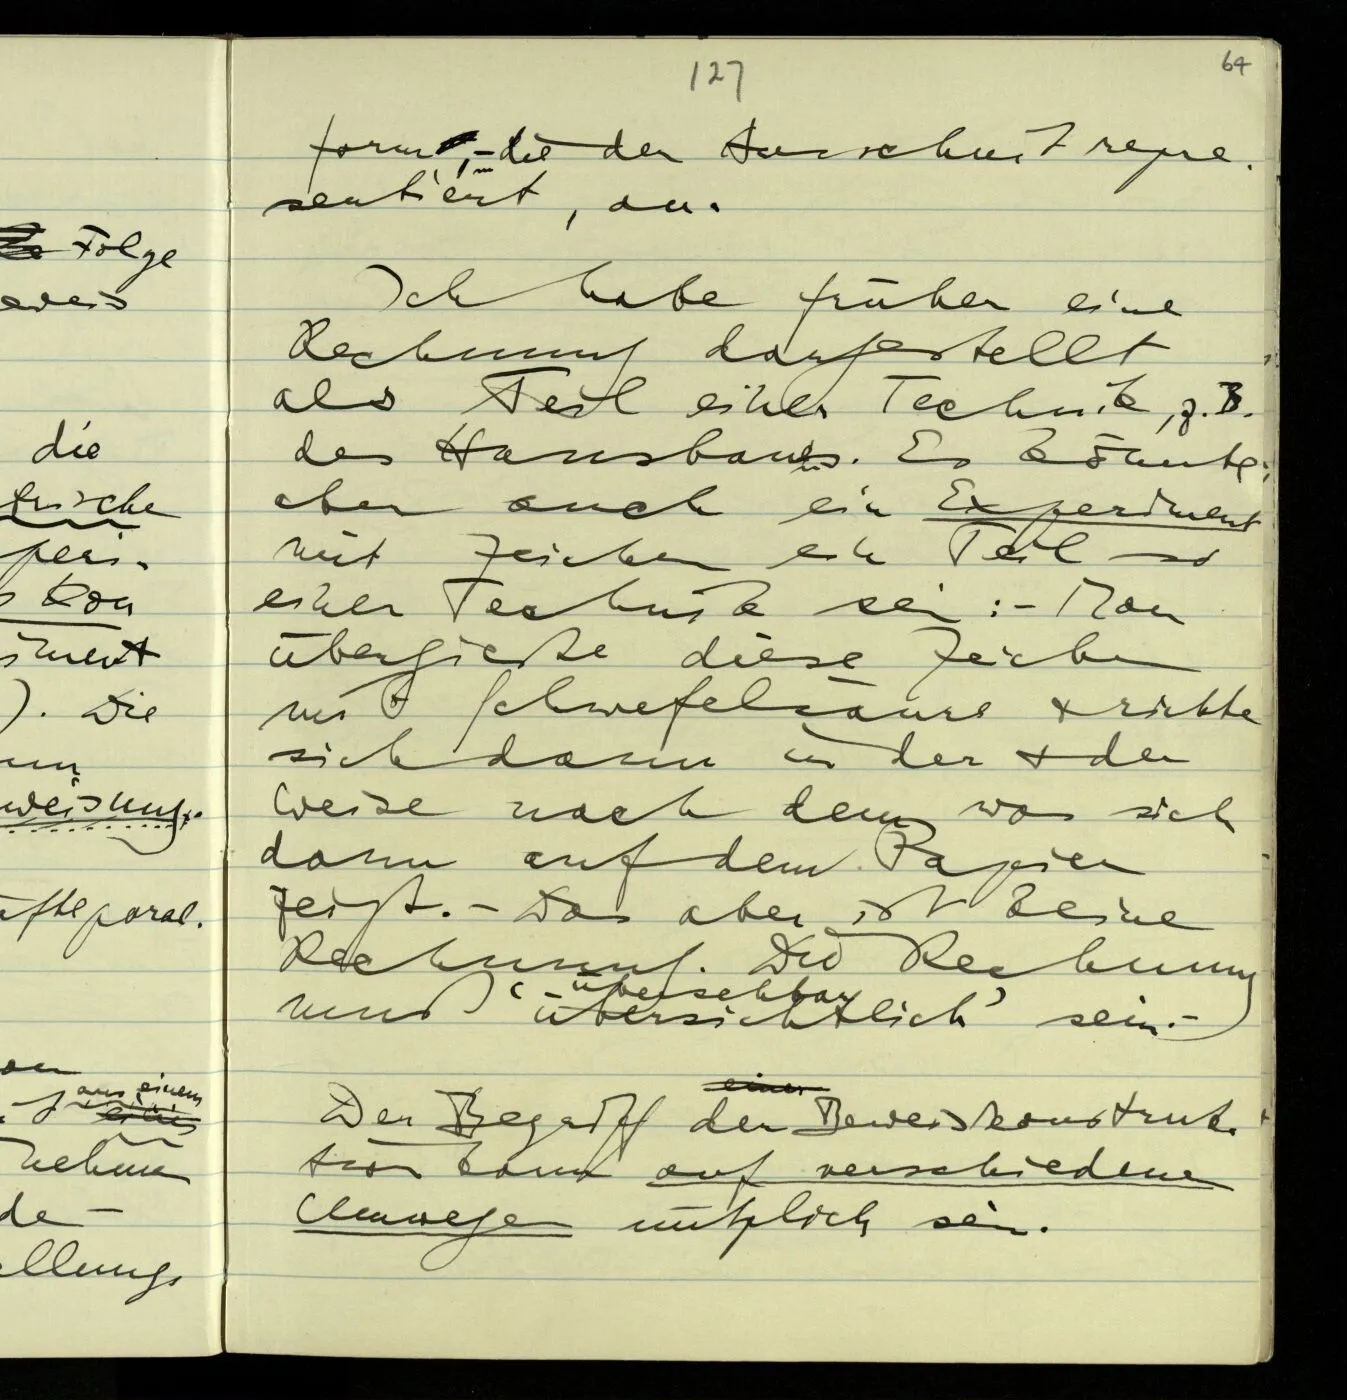 127
64
form, – die der Ausschnitt reprä-
sentiert, an.
Ich habe früher eine
Rechnung dargestellt
als Teil einer Technik, z.B.
des Hausbaues. Es könnte
aber auch ein Experiment
mit Zeichen ein Teil so
einer Technik sein: – Man
übergieße diese Zeichen
mit Schwefelsäure & richte
sich dann in der & der
Weise nach dem was sich
dann auf dem Papier
zeigt. – Das aber ist keine
Rechnung. Die Rechnung
übersehbar
muß ‘übersichtlich’ sein. –
einer
Der Begriff der Beweiskonstruk-
tion kann auf verschiedene
Umwegen nützlich sein.
Folge
eweis
die
frische
peri-
kon
iment
). Die
weisung.
aus einem
nehme
de –
ellungs